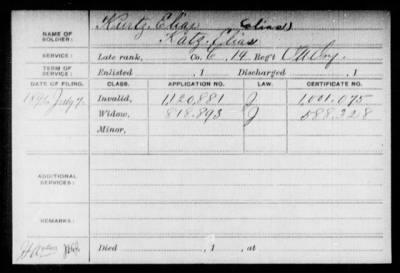 NAME OF SOLDIER: Kurtz, Elias (alias)
Katz, Elias
SERVICE: Late rank, Co. C, 14 Reg't
TERM OF SERVICE: Enlisted , 1 Discharged , 1
DATE OF FILING. CLASS. APPLICATION NO. LAW. CERTIFICATE NO.
July 7 Invalid, 1,120,881 J 1,001,075
Widow, 818,893 J 588,228
Minor,
ADDITIONAL SERVICES:
REMARKS:
Died , 1 , at